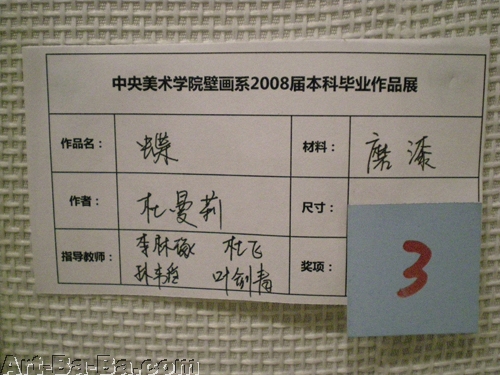 中央美术学院壁画系2008届本科毕业作品展
作品名： 蝶 材料： 磨漆
作者： 杜曼莉 尺寸：
指导教师： 杜飞 奖项：
叶剑青
3
Art-Ba-Ba.com